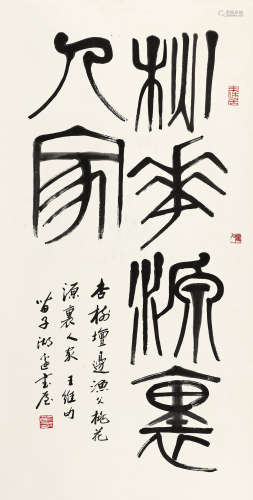 桃華源裏
人家
杏樹壇邊漁父桃花
源裏人家 王維句
苗子